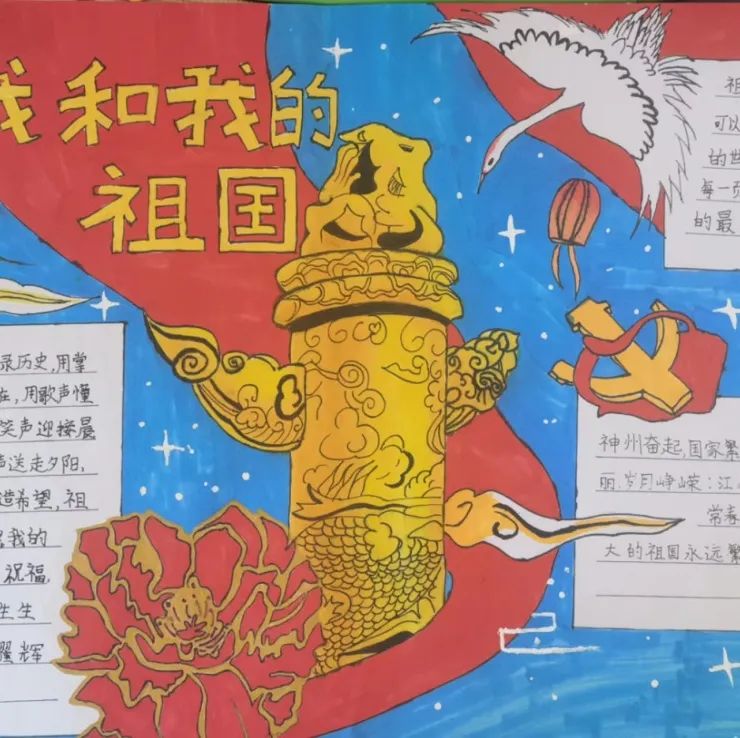 我和我的
祖国
录历史,用掌
在,用歌声懂
笑声迎接晨
声送走夕阳,
造希望,祖
我的
祝福,
生生
耀辉
祖
可以
的世
每一
的最
神州奋起,国家繁
丽.岁月峥嵘:江
常春
大的祖国永远繁